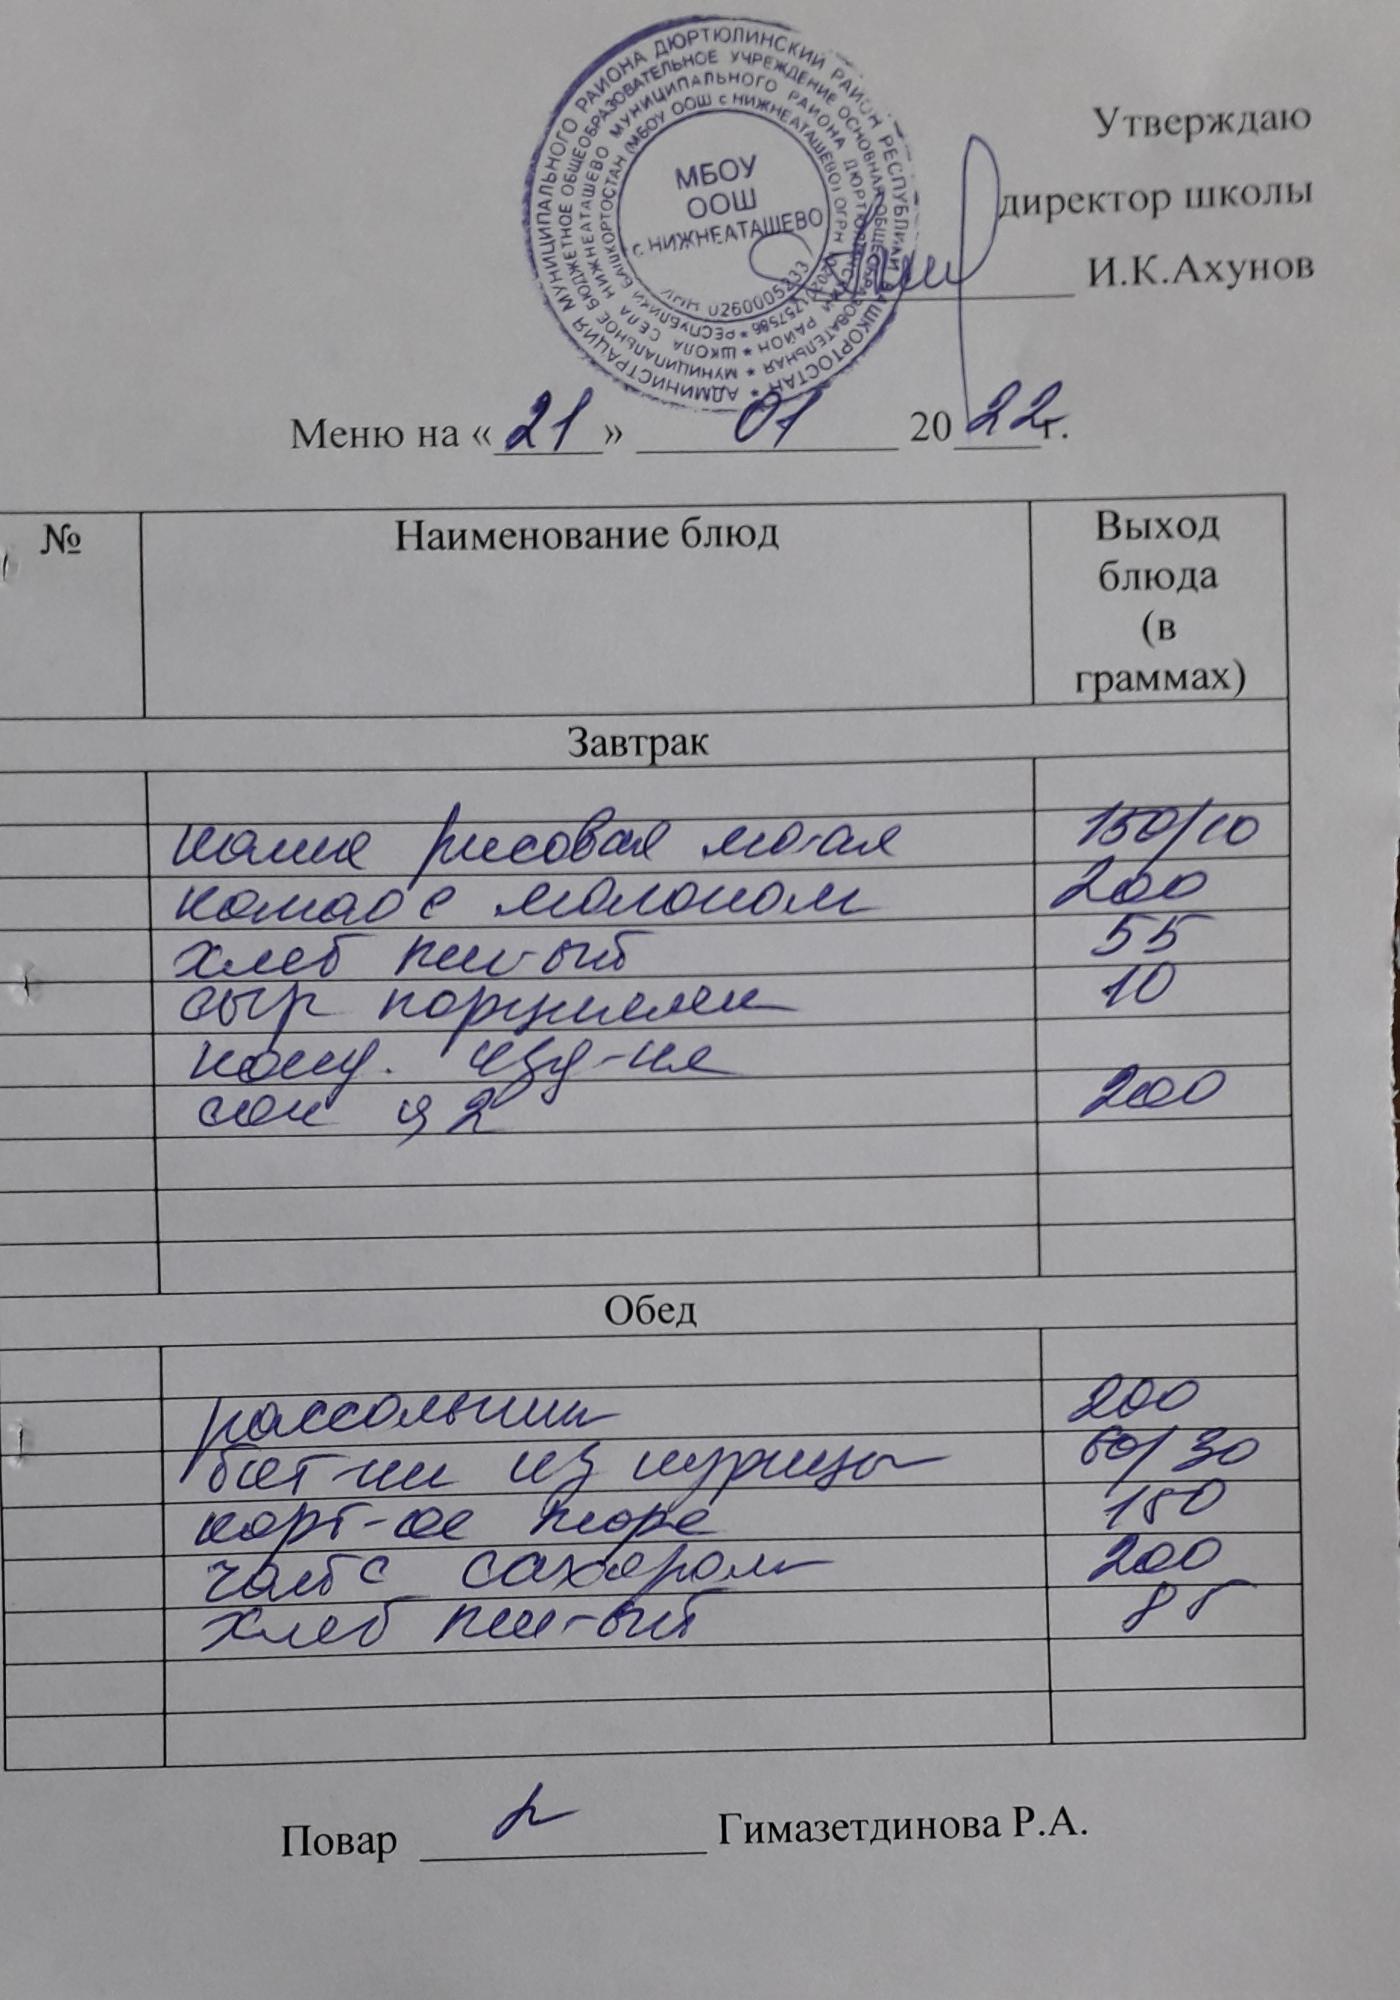 АДМИНИСТРАЦИЯ МУНИЦИПАЛЬНОГО РАЙОНА ДЮРТЮЛИНСКИЙ РАЙОН РЕСПУБЛИКИ БАШКОРТОСТАН *
МУНИЦИПАЛЬНОЕ БЮДЖЕТНОЕ ОБЩЕОБРАЗОВАТЕЛЬНОЕ УЧРЕЖДЕНИЕ ОСНОВНАЯ ОБЩЕОБРАЗОВАТЕЛЬНАЯ *
ШКОЛА СЕЛА НИЖНЕАТАШЕВО МУНИЦИПАЛЬНОГО РАЙОНА ДЮРТЮЛИНСКИЙ РАЙОН *
РЕСПУБЛИКИ БАШКОРТОСТАН (МБОУ ООШ с НИЖНЕАТАШЕВО) ОГРН
МБОУ
ООШ
с НИЖНЕАТАШЕВО
ИНН 0260005233
Утверждаю
директор школы
И.К.Ахунов
Меню на « 21 » 01 20 22 г.
№ Наименование блюд Выход
блюда
(в
граммах)
Завтрак
каша рисовая мо-ая 150/10
какао с молоком 200
хлеб пш-ый 55
сыр порциями 10
конд. изд-ия
сок 0,2 200
Обед
рассольник 200
бит-ки из курицы 60/30
карт-ое пюре 150
чай с сахаром 200
хлеб пш-ый 85
Повар Гимазетдинова Р.А.